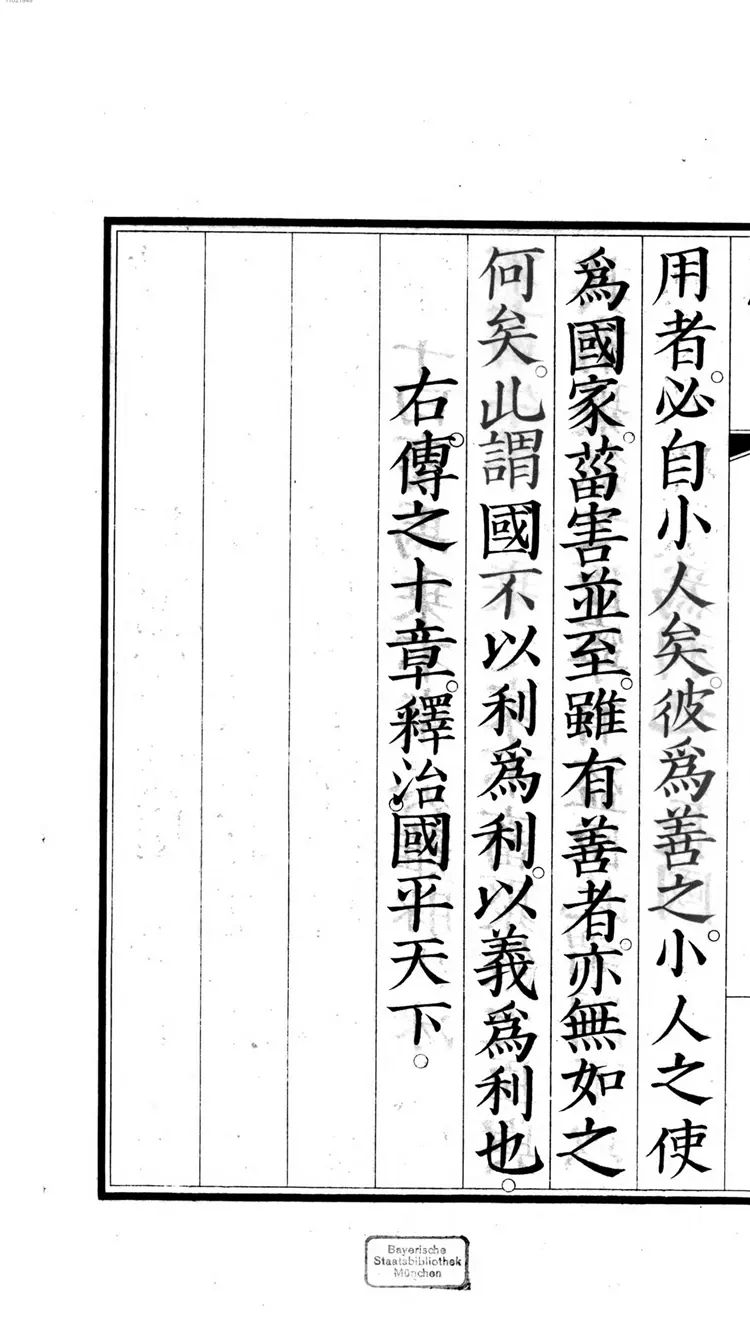 用者。必自小人矣。彼爲善之。小人之使
爲國家。菑害並至。雖有善者。亦無如之
何矣。此謂國不以利爲利。以義爲利也。
右傳。之十章。釋治。國平天下。
Bayerische
Staatsbibliothek
München